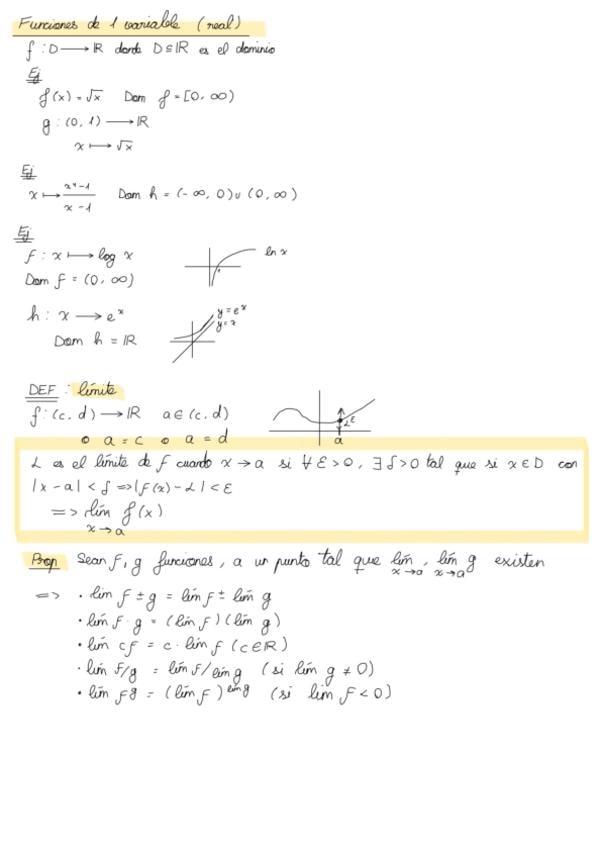 Funciones de 1 variable (real)
f : D → ℝ donde D ⊆ ℝ es el dominio
Ej
f(x) = √x Dom f = [0, ∞)
g : (0, 1) → ℝ
x ↦ √x
Ej
x ↦ (x⁴-1)/(x-1) Dom h = (-∞, 0) ∪ (0, ∞)
Ej
f : x ↦ log x
ln x
Dom f = (0, ∞)
h : x → eˣ
y = eˣ
y = x
Dom h = ℝ
DEF : límite
f : (c, d) → ℝ a ∈ (c, d)
o a = c o a = d
L ε
a
L es el límite de f cuando x → a si ∀ ε > 0, ∃ δ > 0 tal que si x ∈ D con
|x - a| < δ => |f(x) - L| < ε
=> lím f(x)
x → a
Prop Sean f, g funciones, a un punto tal que lím, lím g existen
x → a x → a
=> • lím f ± g = lím f ± lím g
• lím f · g = (lím f)(lím g)
• lím cf = c · lím f (c ∈ ℝ)
• lím f/g = lím f / lím g (si lím g ≠ 0)
• lím f^g = (lím f)^lím g (si lim f < 0)